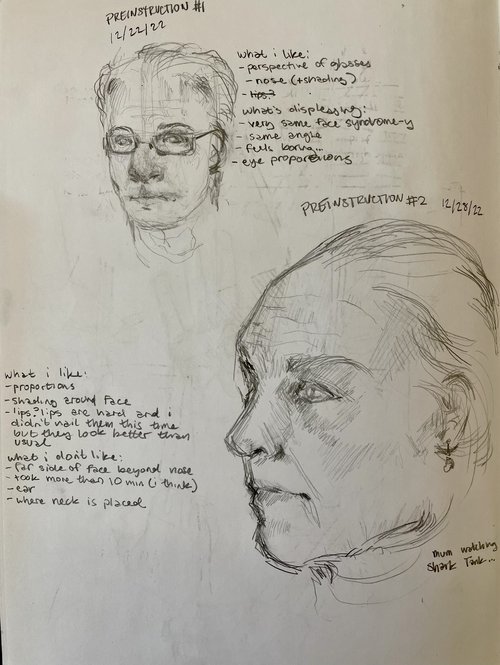 PREINSTRUCTION #1
12/22/22
what i like:
- perspective of glasses
- nose (+shading)
- lips?
what's displeasing:
- very same face syndrome-y
- same angle
- feels boring...
- eye proportions
PREINSTRUCTION #2 12/28/22
what i like:
- proportions
- shading around face
- lips? lips are hard and i
didn't nail them this time
but they look better than
usual
what i don't like:
- far side of face beyond nose
- took more than 10 min (i think)
- ear
- where neck is placed
mum watching
Shark Tank...